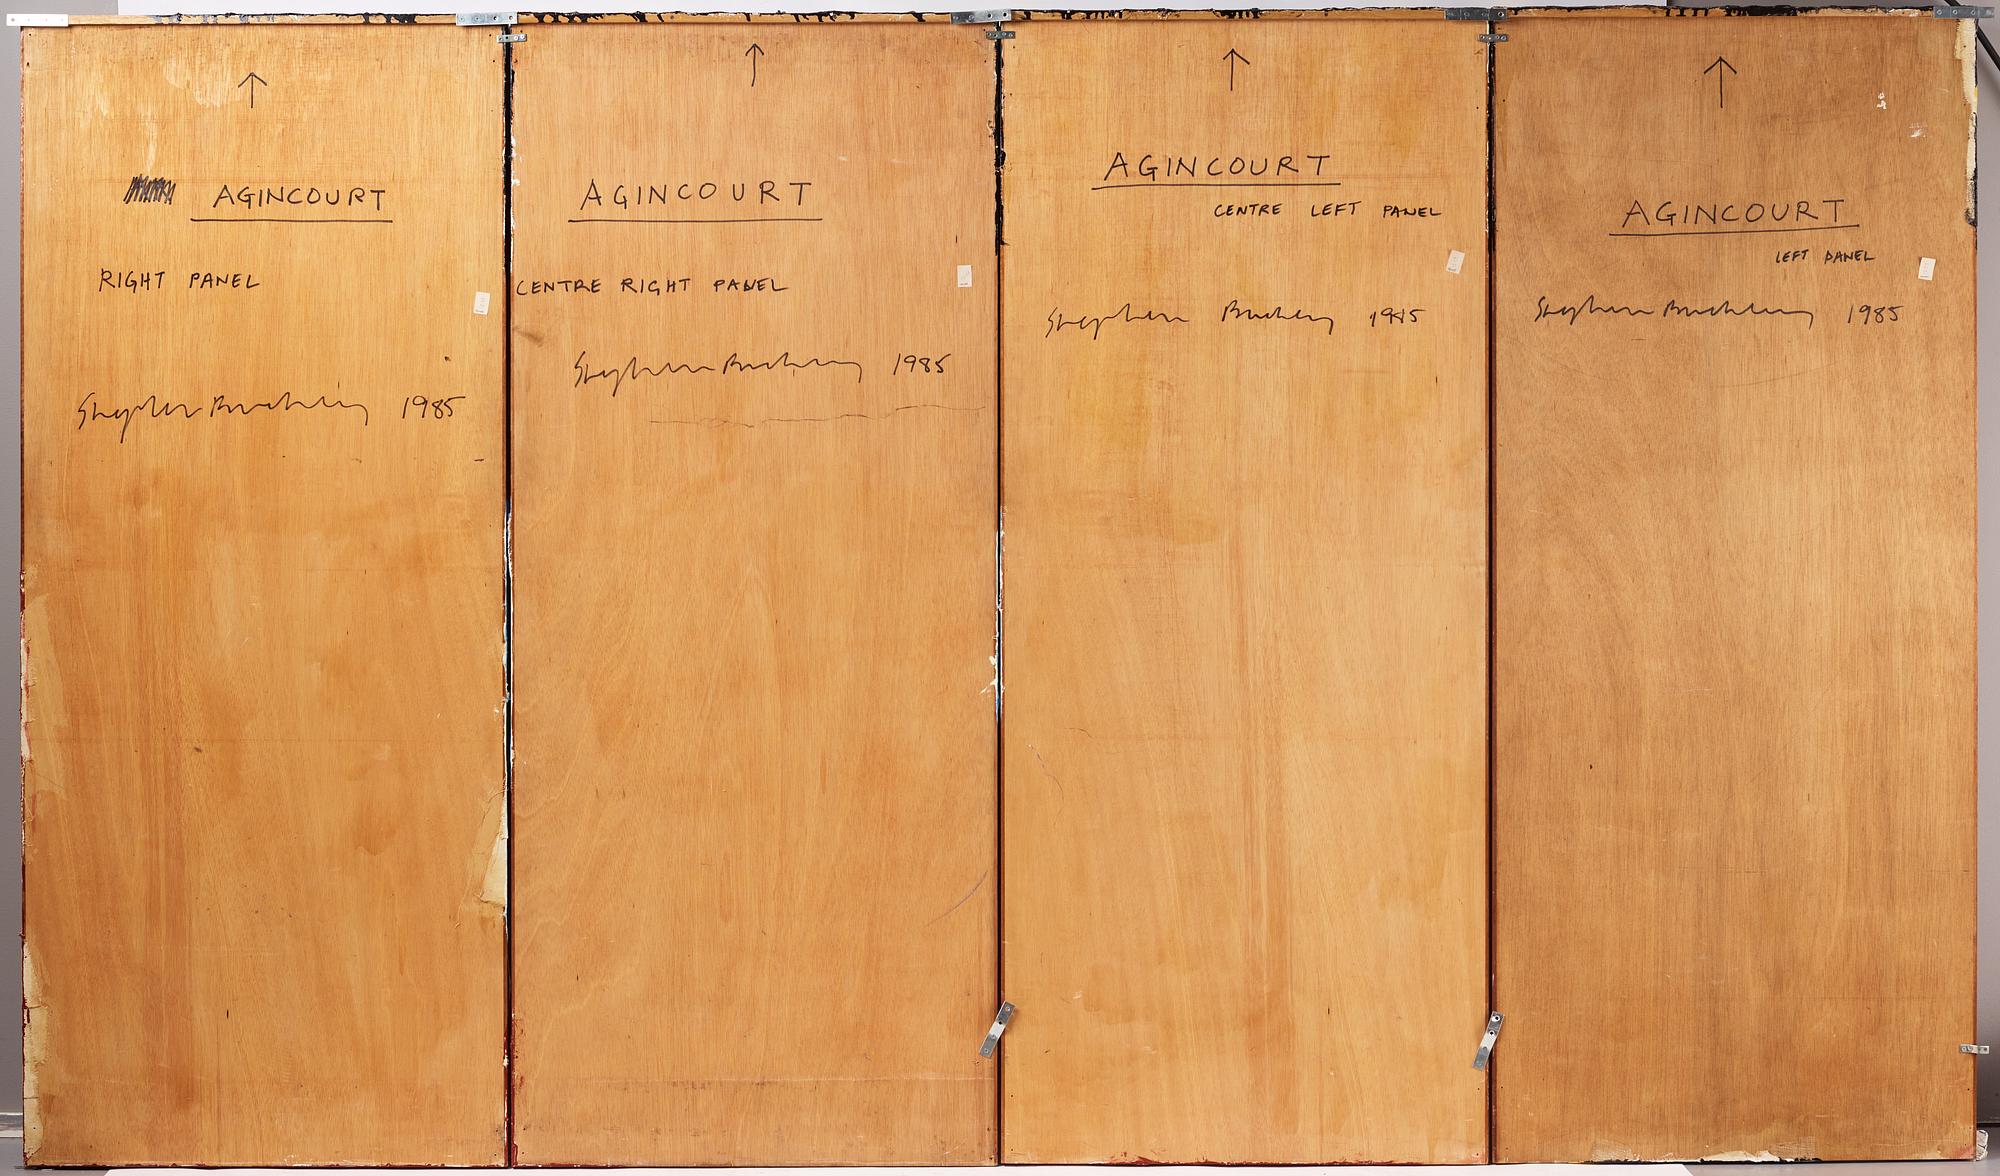 AGINCOURT
RIGHT PANEL
Stephen Buckley 1985
AGINCOURT
CENTRE RIGHT PANEL
Stephen Buckley 1985
AGINCOURT
CENTRE LEFT PANEL
Stephen Buckley 1985
AGINCOURT
LEFT PANEL
Stephen Buckley 1985